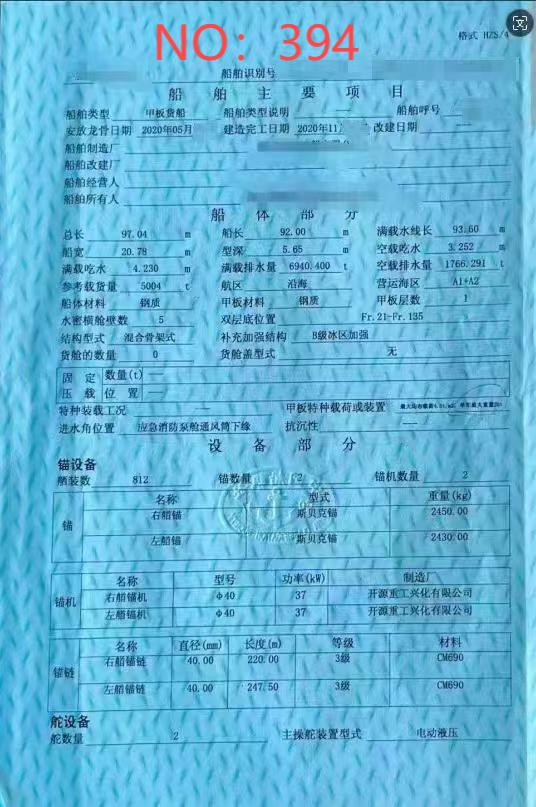 NO: 394
格式 HZS/4
船舶识别号
船舶主要项目
船舶类型 甲板货船 船舶类型说明 船舶呼号
安放龙骨日期 2020年05月 建造完工日期 2020年11 改建日期
船舶制造厂
船舶改建厂
船舶经营人
船舶所有人
船体部分
总长 97.04 m 船长 92.00 m 满载水线长 93.60 m
船宽 20.78 m 型深 5.65 m 空载吃水 3.252 m
满载吃水 4.230 m 满载排水量 6940.400 t 空载排水量 1766.291 t
参考载货量 5004 t 航区 沿海 营运海区 A1+A2
船体材料 钢质 甲板材料 钢质 甲板层数 1
水密横舱壁数 5 双层底位置 Fr.21-Fr.135
结构型式 混合骨架式 补充加强结构 B级冰区加强
货舱的数量 0 货舱盖型式 无
固定 数量(t) —
压载 位置 —
特种装载工况 — 甲板特种载荷或装置
进水角位置 应急消防泵舱通风筒下缘 抗沉性 —
设备部分
锚设备
舾装数 812 锚数量 2 锚机数量 2
锚 名称 型式 重量(kg)
右艏锚 斯贝克锚 2450.00
左艏锚 斯贝克锚 2430.00
锚机 名称 型号 功率(kW) 制造厂
右艏锚机 Φ40 37 开源重工兴化有限公司
左艏锚机 Φ40 37 开源重工兴化有限公司
锚链 名称 直径(mm) 长度(m) 等级 材料
右艏锚链 40.00 220.00 3级 CM690
左艏锚链 40.00 247.50 3级 CM690
舵设备
舵数量 2 主操舵装置型式 电动液压